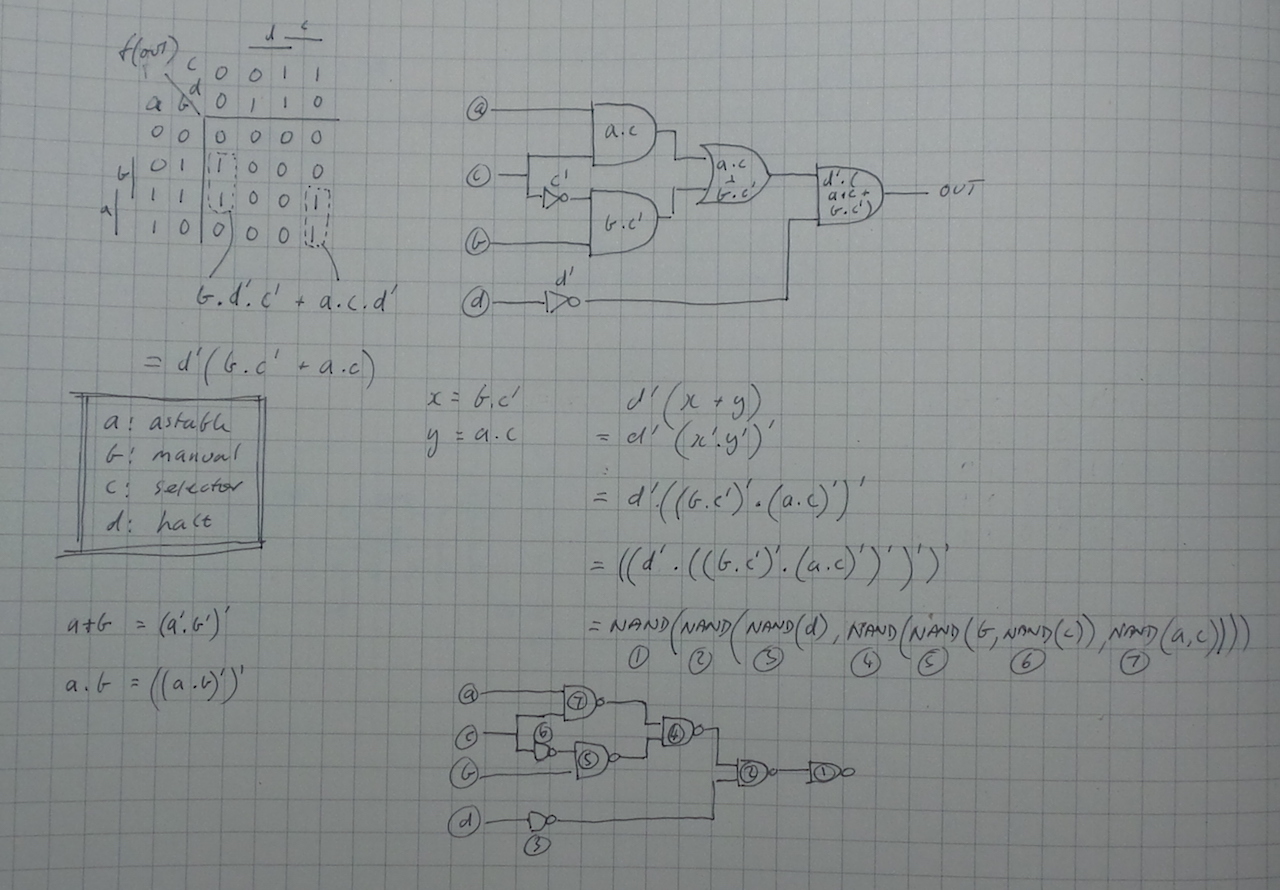 d c
f(out) c 0 0 1 1
d
a b 0 1 1 0
0 0 0 0 0 0
b 0 1 1 0 0 0
a 1 1 1 0 0 1
1 0 0 0 0 1
b.d'.c' + a.c.d'
= d'(b.c' + a.c)
a: astable
b: manual
c: selector
d: halt
a+b = (a'.b')'
a.b = ((a.b)')'
a
a.c
c
c'
b.c'
b
d
d'
a.c
+
b.c'
d'.(
a.c +
b.c')
OUT
x = b.c'
y = a.c
d'(x + y)
= d' (x'.y')'
= d'.((b.c')'.(a.c)')'
= ((d'.((b.c')'.(a.c)')')')'
= NAND(NAND(NAND(d), NAND(NAND(b, NAND(c)), NAND(a,c))))
1 2 3 4 5 6 7
a 7
c 6 4
b 5 2 1
d
3